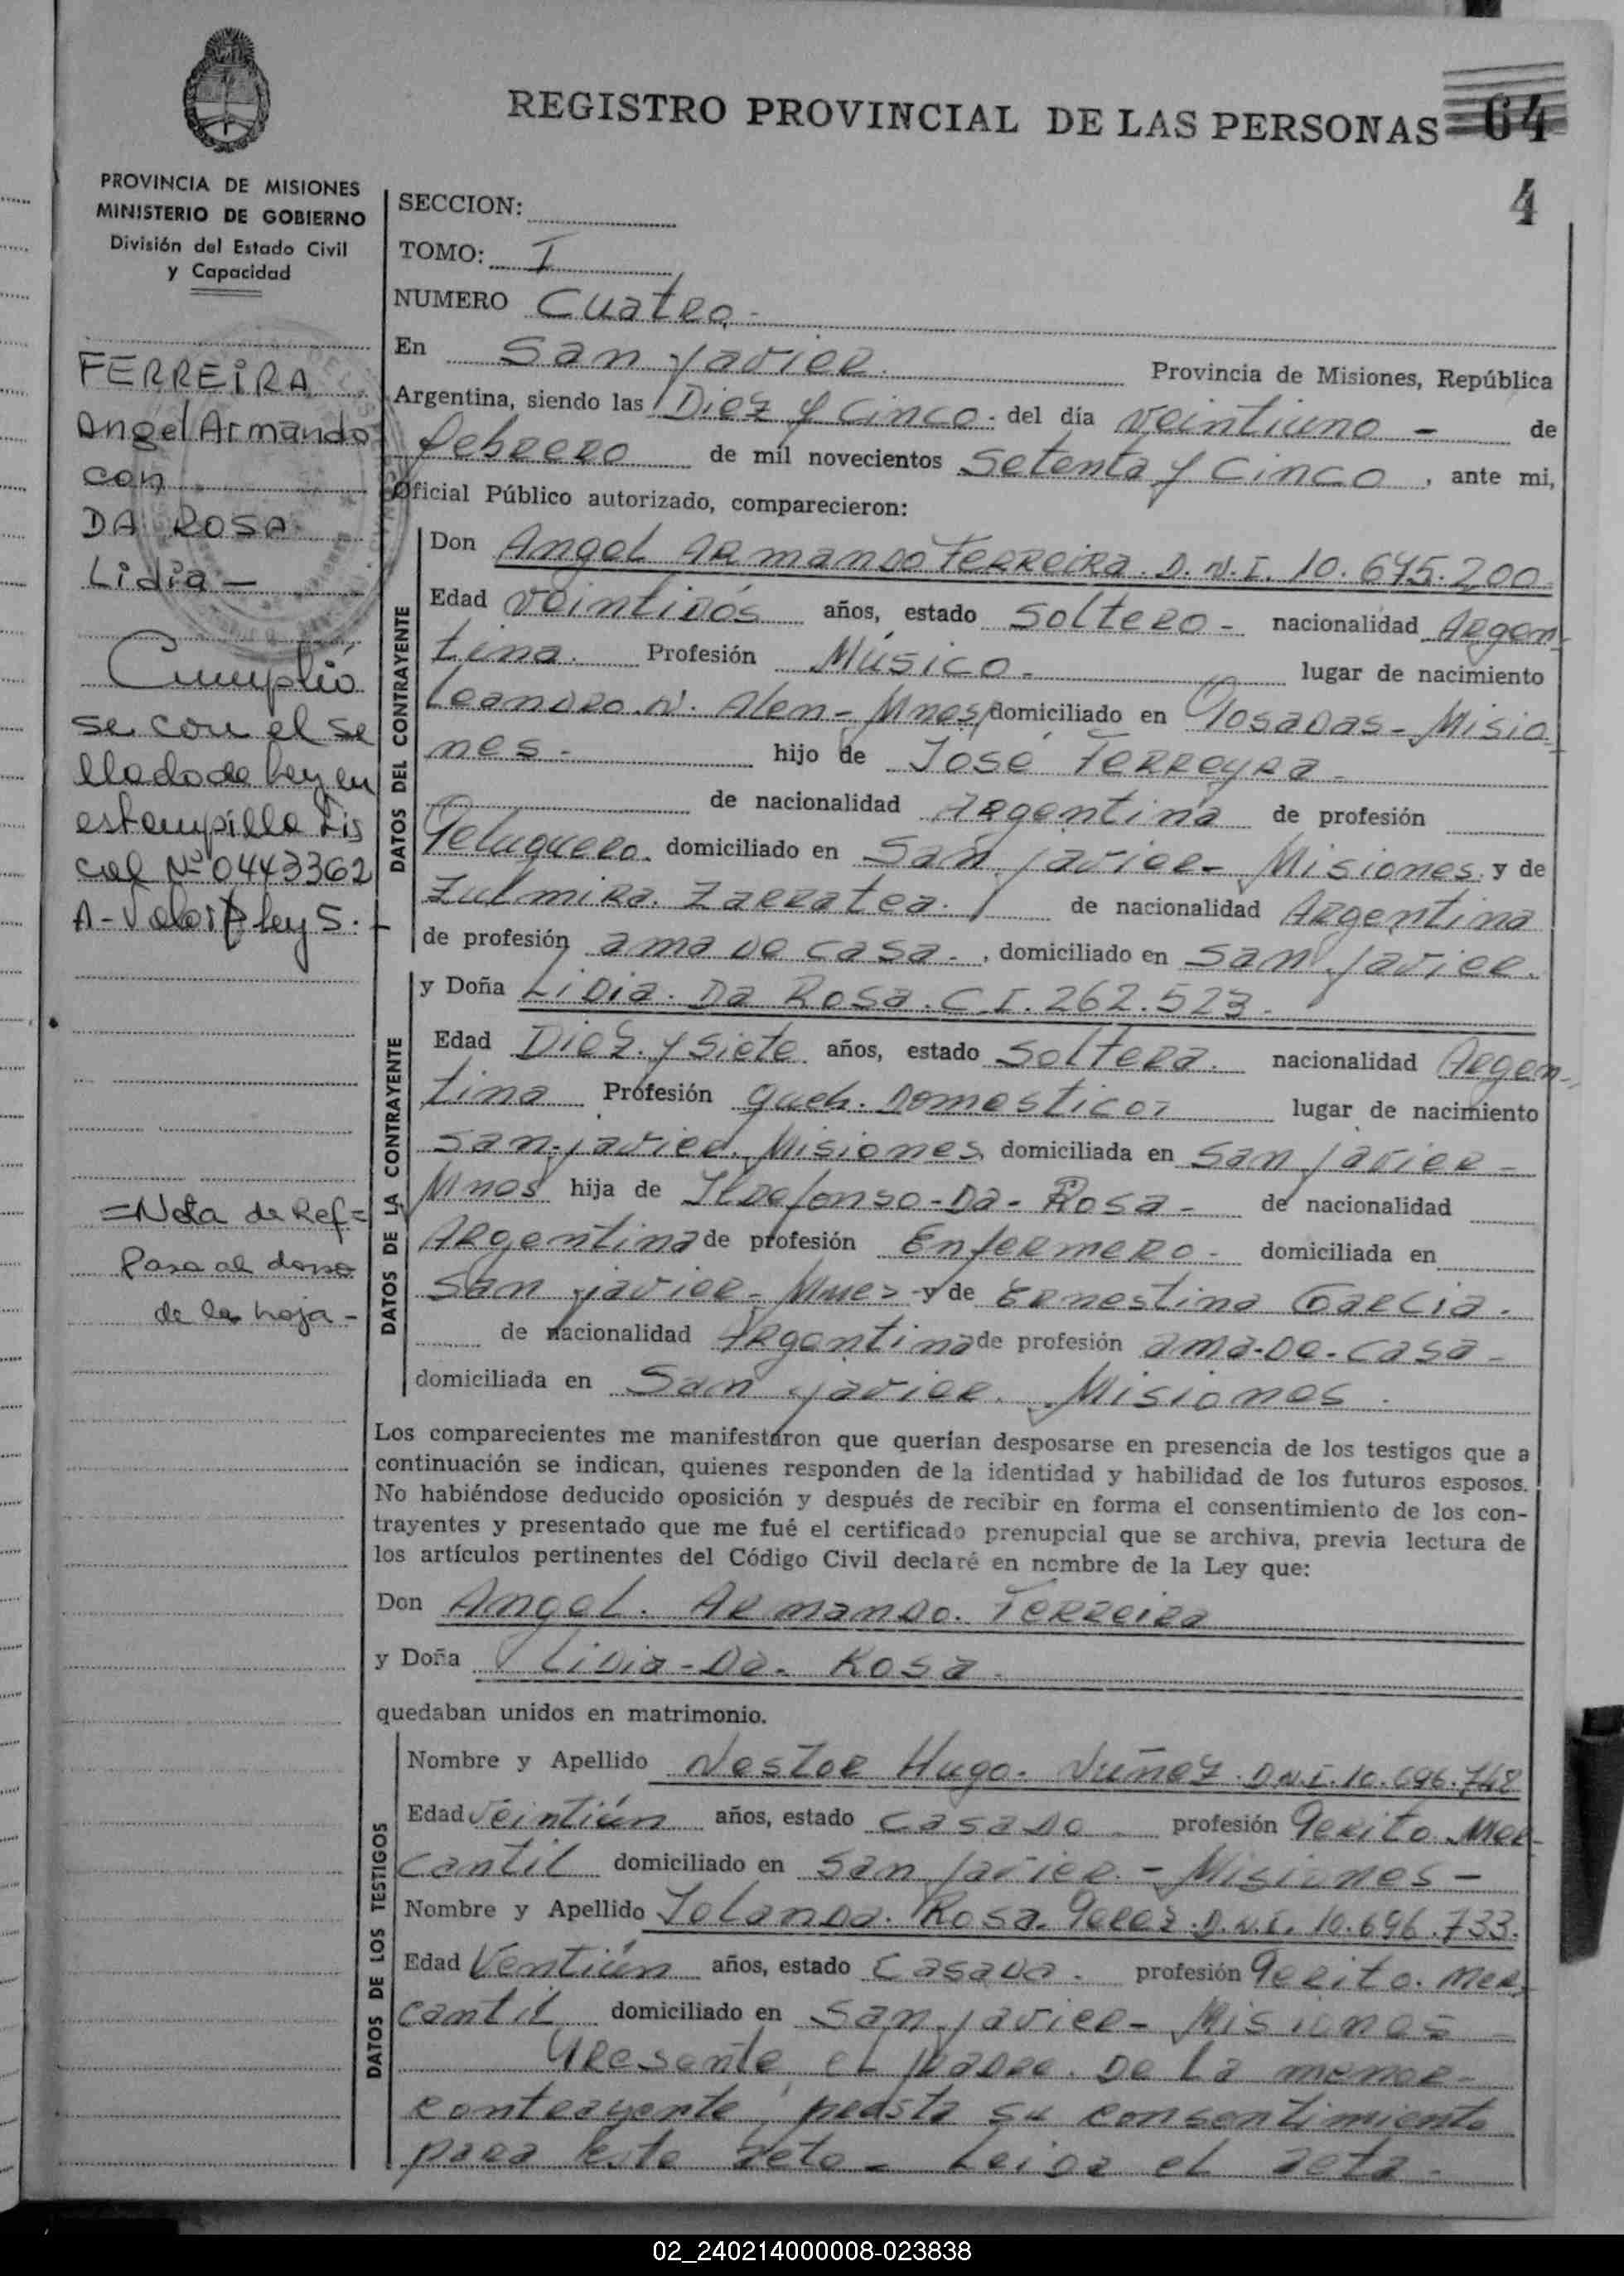 REGISTRO PROVINCIAL DE LAS PERSONAS 64
4
PROVINCIA DE MISIONES
MINISTERIO DE GOBIERNO
División del Estado Civil
y Capacidad
FERREIRA
Angel Armando
con
DA ROSA
Lidia -
Cumplió
se con el se
llado de ley en
estampilla fis
cal Nº 0443362
A - Valor $ ley 5. -
= Nota de Ref =
Pasa al dorso
de la hoja -
SECCION:
TOMO: I
NUMERO Cuatro -
En San Javier. Provincia de Misiones, República
Argentina, siendo las Diez y Cinco. del día veintiuno - de
febrero de mil novecientos Setenta y Cinco, ante mi,
Oficial Público autorizado, comparecieron:
DATOS DEL CONTRAYENTE
Don Angel Armando Ferreira. D.N.I. 10.675.200
Edad veintidós años, estado Soltero - nacionalidad Argen-
tina. Profesión Músico - lugar de nacimiento
Leandro. N. Alen - Mnes/domiciliado en Posadas - Misio
nes - hijo de José Ferreyra -
de nacionalidad Argentina de profesión
Peluquero. domiciliado en San Javier - Misiones. y de
Zulmira. Zarratea. de nacionalidad Argentina
de profesión ama de casa -, domiciliado en San Javier.
DATOS DE LA CONTRAYENTE
y Doña Lidia. Da Rosa. C I. 262.523 -
Edad Diez. y Siete años, estado Soltera. nacionalidad Argen-
tina Profesión queh. Domesticos lugar de nacimiento
San Javier. Misiones domiciliada en San Javier -
Mnes hija de Ildefonso - Da - Rosa - de nacionalidad
Argentina de profesión Enfermero - domiciliada en
San Javier - Mnes - y de Ernestina Garcia.
de nacionalidad Argentina de profesión ama-de-casa -
domiciliada en San Javier. Misiones.
Los comparecientes me manifestaron que querían desposarse en presencia de los testigos que a
continuación se indican, quienes responden de la identidad y habilidad de los futuros esposos.
No habiéndose deducido oposición y después de recibir en forma el consentimiento de los con-
trayentes y presentado que me fué el certificado prenupcial que se archiva, previa lectura de
los artículos pertinentes del Código Civil declaré en nombre de la Ley que:
Don Angel. Armando. Ferreira
y Doña Lidia - Da. Rosa -
quedaban unidos en matrimonio.
DATOS DE LOS TESTIGOS
Nombre y Apellido Nestor Hugo. Nuñez. D.N.I. 10.696.748
Edad Veintiún años, estado Casado - profesión Perito Mer-
cantil domiciliado en San Javier - Misiones -
Nombre y Apellido Iolanda. Rosa. Perez. D.N.I. 10.696.733.
Edad Ventiún años, estado Casada. profesión Perito. Mer
cantil domiciliado en San Javier - Misiones -
Presente el padre. de la menor -
contrayente, presta su consentimiento
para este acto - Leida el acta -
02_240214000008-023838